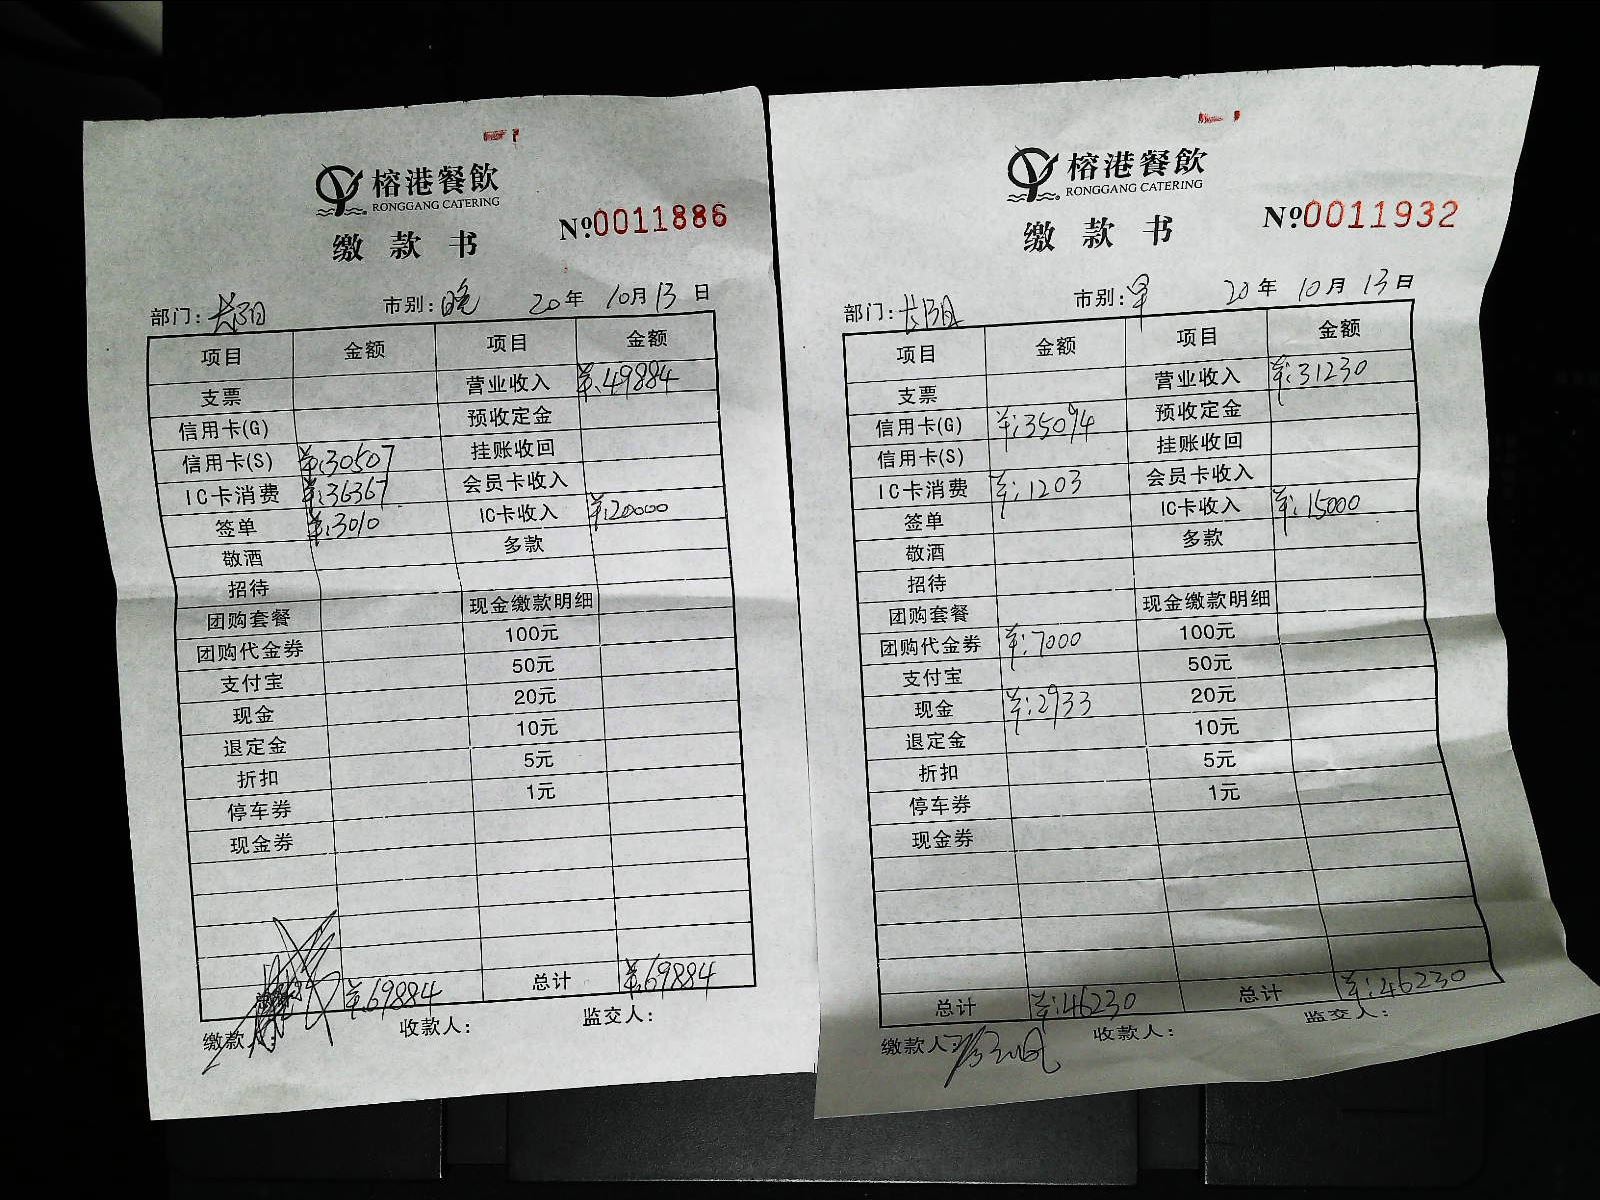 榕港餐飲
RONGGANG CATERING
缴款书
№0011886
部门: 长阳 市别: 晚 20年 10月 13日
项目 金额 项目 金额
支票 营业收入 ¥:49884
信用卡(G) 预收定金
信用卡(S) ¥:30507 挂账收回
IC卡消费 ¥:36367 会员卡收入
签单 ¥:3010 IC卡收入 ¥:20000
敬酒 多款
招待
团购套餐 现金缴款明细
团购代金券 100元
支付宝 50元
现金 20元
退定金 10元
折扣 5元
停车券 1元
现金券
¥:69884 总计 ¥:69884
缴款人: 收款人: 监交人:
榕港餐飲
RONGGANG CATERING
缴款书
№0011932
部门: 长阳 市别: 早 20年 10月 13日
项目 金额 项目 金额
支票 营业收入 ¥:31230
信用卡(G) ¥:35094 预收定金
信用卡(S) 挂账收回
IC卡消费 ¥:1203 会员卡收入
签单 IC卡收入 ¥:15000
敬酒 多款
招待
团购套餐 现金缴款明细
团购代金券 ¥:7000 100元
支付宝 50元
现金 ¥:2933 20元
退定金 10元
折扣 5元
停车券 1元
现金券
总计 ¥:46230 总计 ¥:46230
缴款人: 收款人: 监交人: